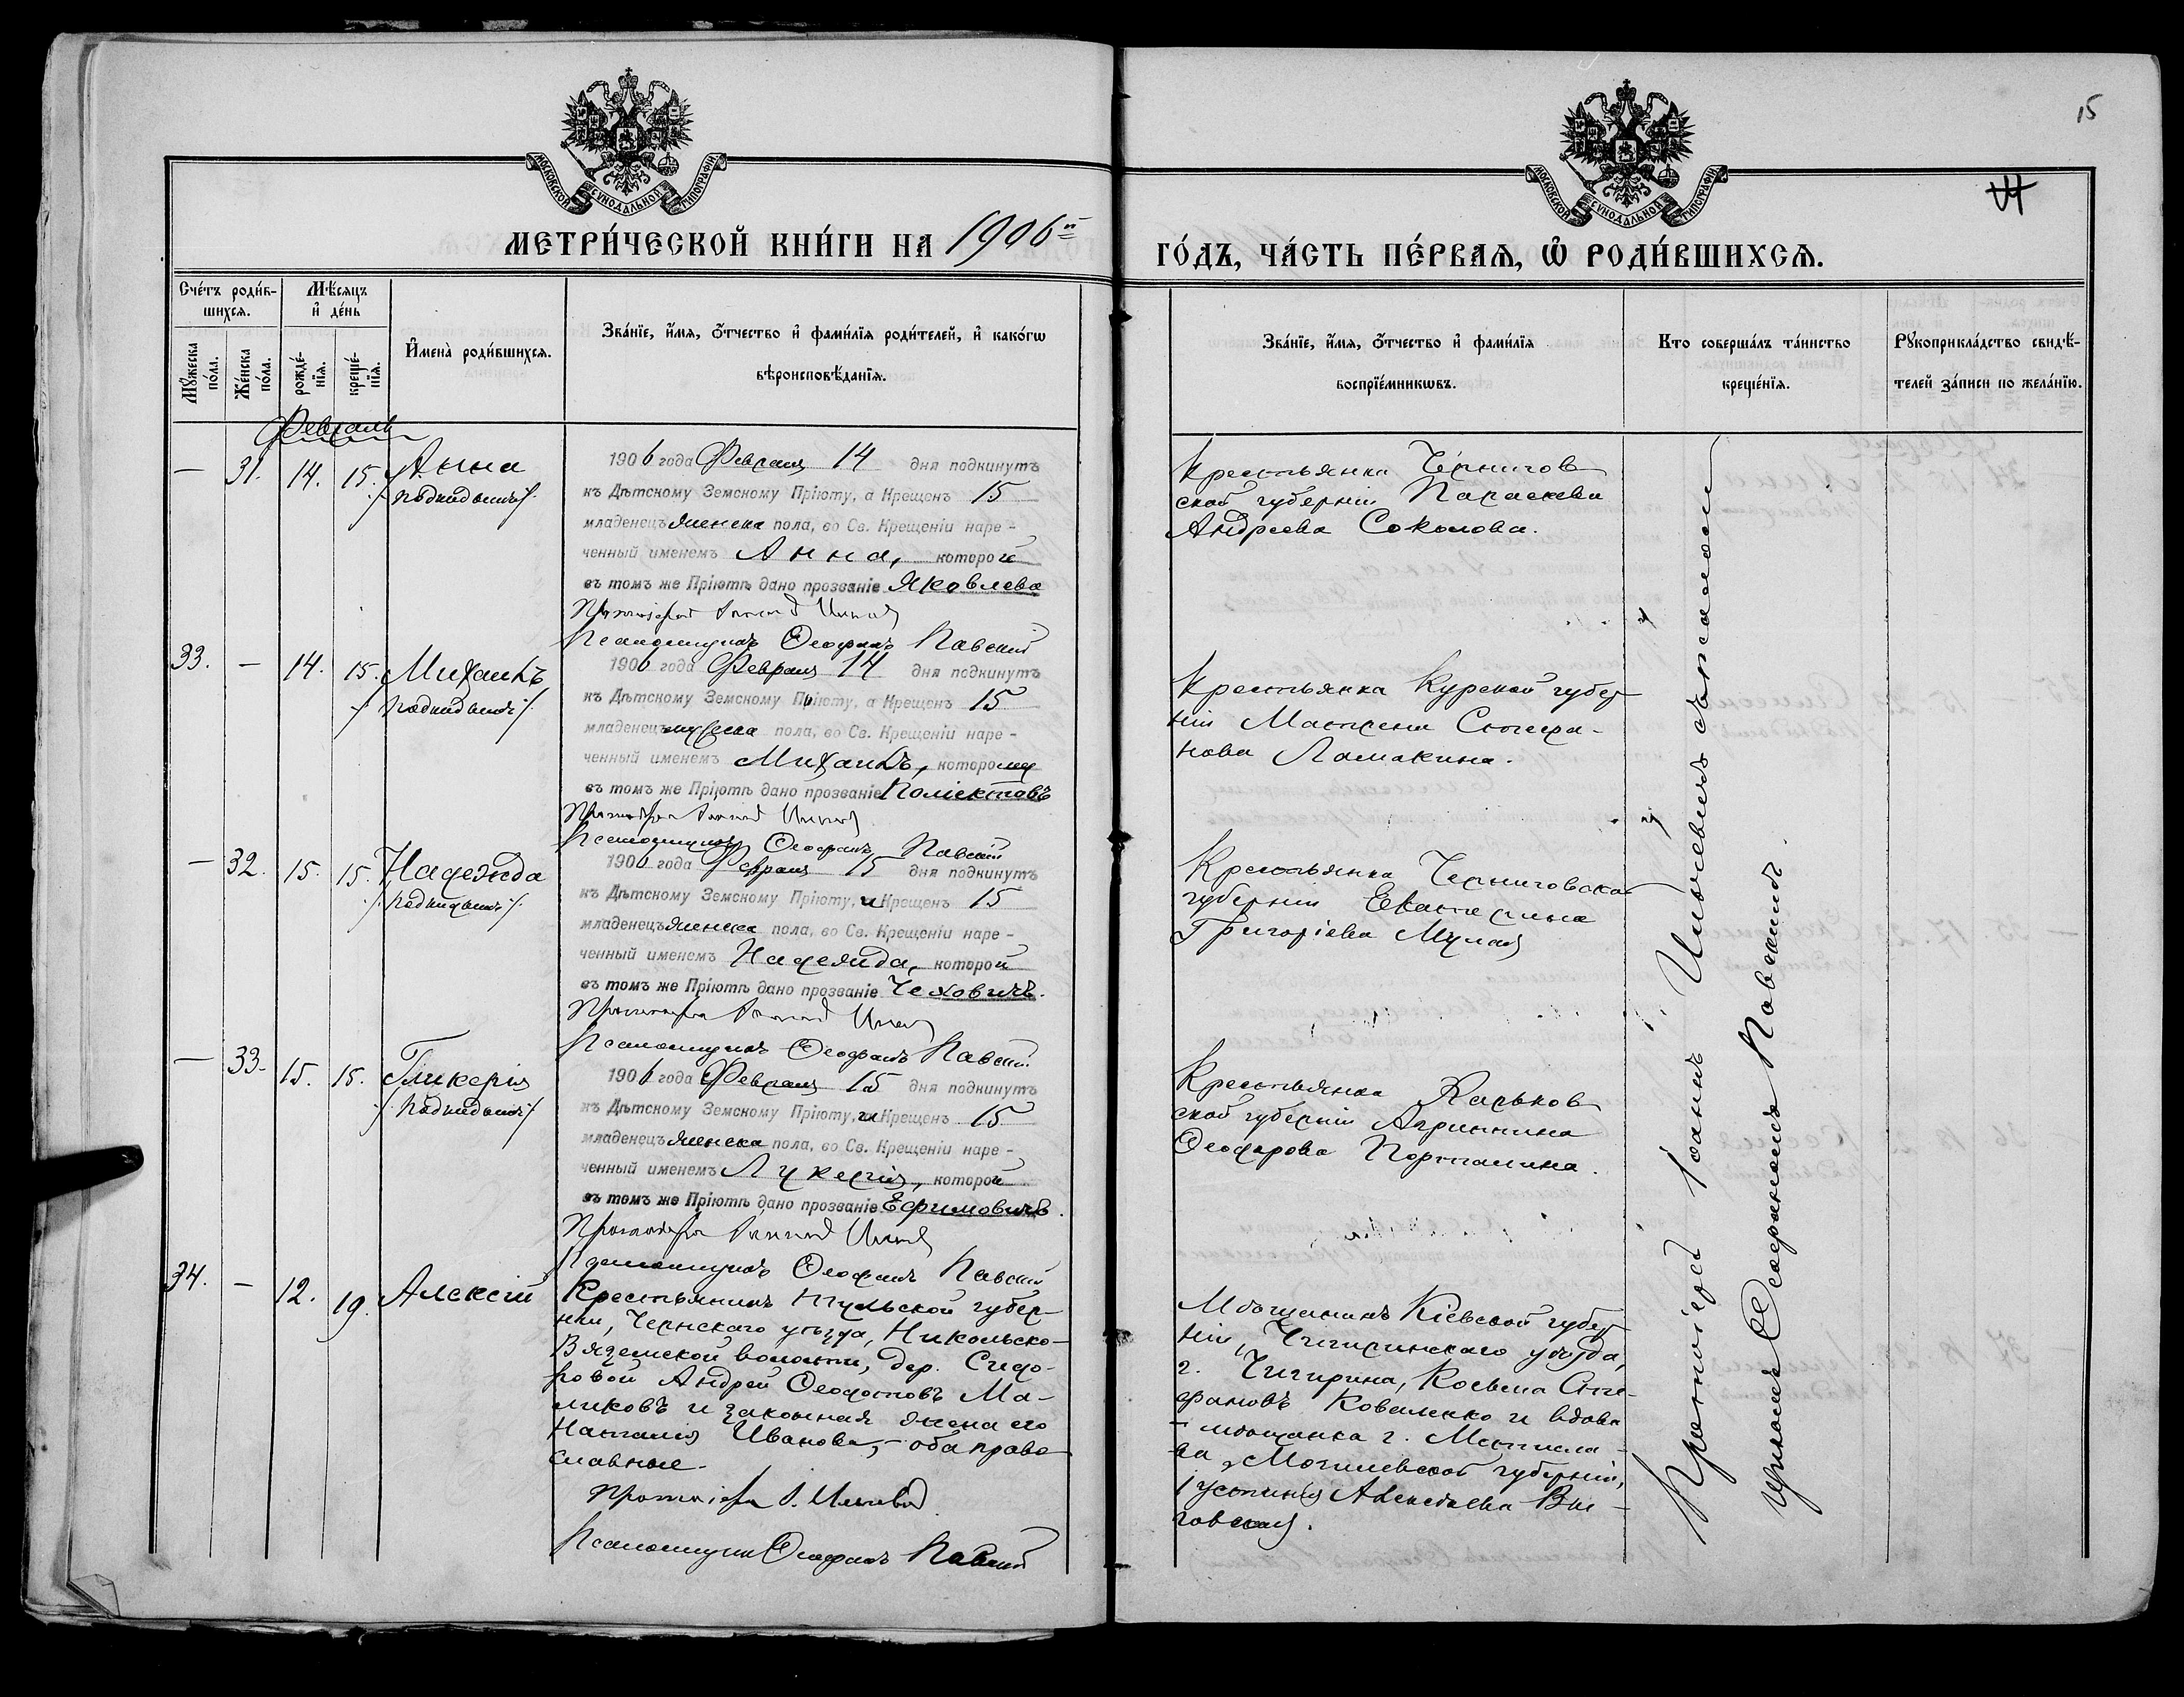 15
МОСКОВСКОЙ СѴНОДАЛЬНОЙ ТИПОГРАФІИ
МОСКОВСКОЙ СѴНОДАЛЬНОЙ ТИПОГРАФІИ
МЕТРИ́ЧЕСКОЙ КНИ́ГИ НА 1906й
ГО́ДЪ, ЧА́СТЬ ПЕ́РВАѦ, Ѡ҆ РОДИ́ВШИХСѦ.
Сче́тъ роди́в-
шихсѧ.
Мꙋ́жеска по́ла.
Же́нска по́ла.
Мѣ́сѧцъ
и҆ де́нь
рожде́-
нїѧ.
креще́-
нїѧ.
И҆мена̀ роди́вшихсѧ.
Зва́нїе, и҆́мѧ, ѻ҆́тчество и҆ фами́лїѧ роди́телей, и҆ како́гѡ
вѣроисповѣ́данїѧ.
Зва́нїе, и҆́мѧ, ѻ҆́тчество и҆ фами́лїѧ
воспрїе́мникѡвъ.
Кто̀ соверша́лъ та́инство
креще́нїѧ.
Рꙋкоприкла́дство свидѣ́-
телей за́писи по жела́нїю.
Февраль
— 31. 14. 15. Анна
/подкидышъ/.
1906 года Февраля 14 дня подкинутъ
къ Дѣтскому Земскому Пріюту, а Крещенъ 15
младенецъ женска пола, во Св. Крещеніи наре-
ченный именемъ Анна, которой
въ томъ же Пріютѣ дано прозваніе Яковлева
Протоіерей
Псаломщикъ Ѳеофанъ Павскій
Крестьянка Чернигов
ской губерніи Параскева
Андреева Соколова.
33. — 14. 15. Михаилъ
/подкидышъ/.
1906 года Февраля 14 дня подкинутъ
къ Дѣтскому Земскому Пріюту, а Крещенъ 15
младенецъ мужеска пола, во Св. Крещеніи наре-
ченный именемъ Михаилъ, которому
въ томъ же Пріютѣ дано прозваніе Поліектовъ
Протоіерей
Псаломщикъ Ѳеофанъ Павскій
Крестьянка Курской губер
ніи Матрена Стефа-
нова Ламакина.
— 32. 15. 15. Надежда
/подкидышъ/.
1906 года Февраля 15 дня подкинутъ
къ Дѣтскому Земскому Пріюту, и Крещенъ 15
младенецъ женска пола, во Св. Крещеніи наре-
ченный именемъ Надежда, которой
въ томъ же Пріютѣ дано прозваніе Чеховичъ.
Протоіерей
Псаломщикъ Ѳеофанъ Павскій
Крестьянка Черниговской
губерніи Екатерина
Григоріева
— 33. 15. 15. Гликерія
/подкидышъ/
1906 года Февраля 15 дня подкинутъ
къ Дѣтскому Земскому Пріюту, и Крещенъ 15
младенецъ женска пола, во Св. Крещеніи наре-
ченный именемъ Лукерія, которой
въ томъ же Пріютѣ дано прозваніе Ефимовичъ.
Протоіерей
Псаломщикъ Ѳеофанъ Павскій
Крестьянка Харьков
ской губерніи Агриппина
Ѳеодорова Порталина.
34. — 12. 19. Алексій
Крестьянинъ Тульской губер-
ніи, Чернскаго уѣзда, Никольско-
Вяземской волости, дер. Сидо-
ровой Андрей Ѳеодотовъ Ма-
ликовъ и законная жена его
Наталія Иванова,- оба право
славные.
Протоіерей І. Ильичевъ
Псаломщикъ Ѳеофанъ Павскій
Мѣщанинъ Кіевской губер
ніи, Чигиринскаго уѣзда,
г. Чигирина, Косьма Сте-
фановъ Коваленко и вдова
- мѣщанка г. Мстисла-
ва, Могилевской губерніи,
Іустинія Алексѣева Вы-
говская.
Протоіерей Іоаннъ Ильичевъ съ псалом
щикомъ Ѳеофаномъ Павскимъ.